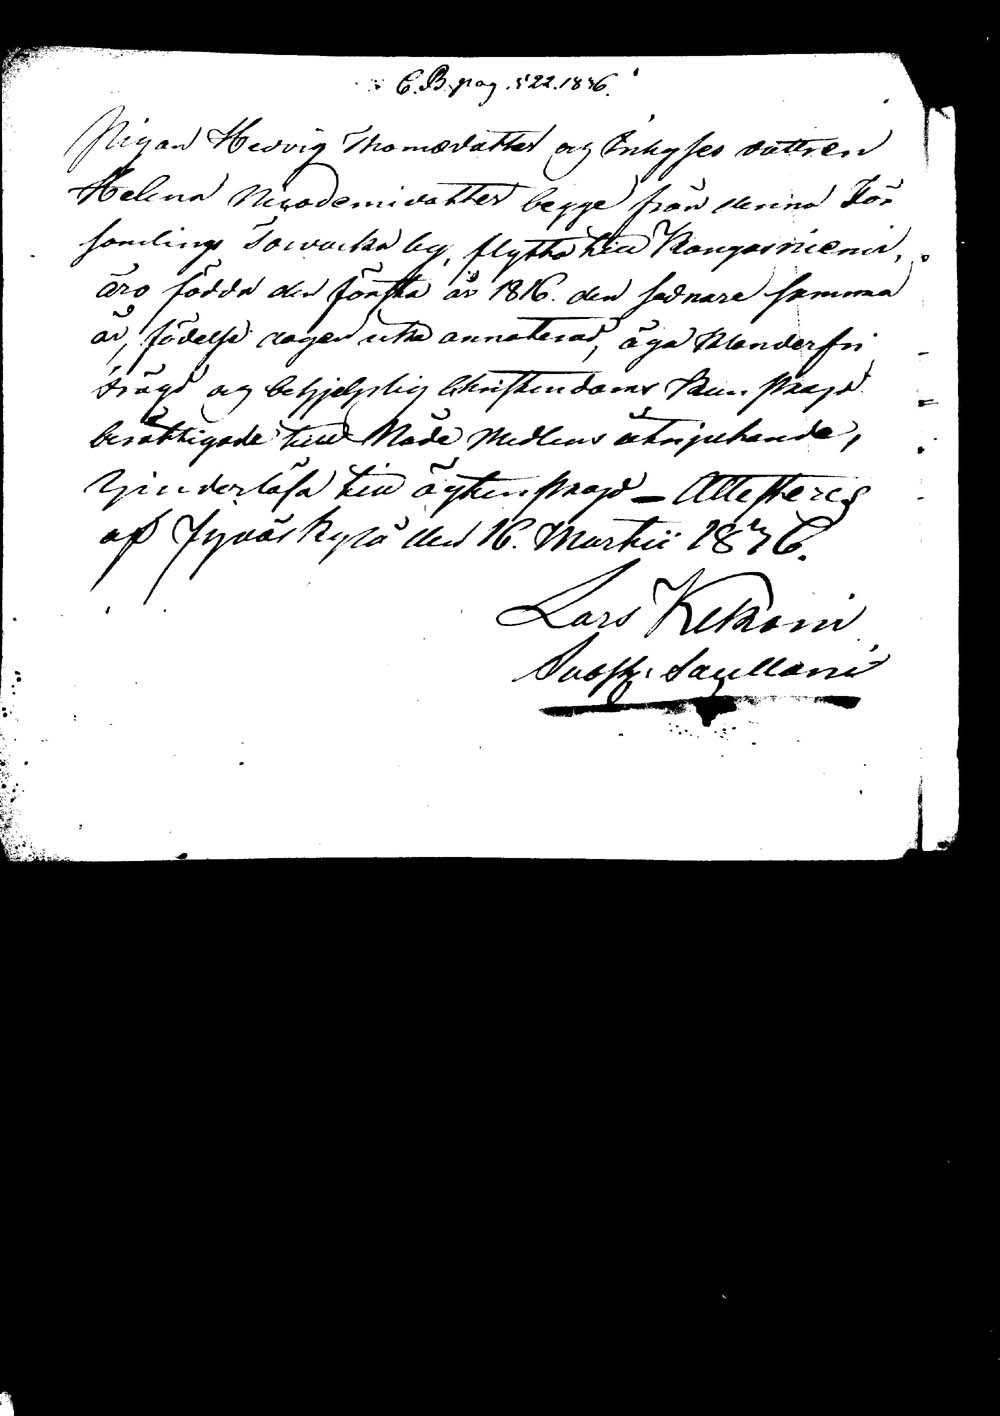 C.B. pag. 522. 1836.
Pigan Hedvig Thomædotter og Inhyses dottren
Helena Nicodemidotter begge från denna För
samlings by, flytta till Kangasniemi,
äro födda den förstra år 1816. den sednare samma
år, födelse dagen icke annoterad, äga klanderfri
frägd og behjelplig Christendoms kunskap
berättigade till Nåde Medlens åtnjutande,
hinderlösa till ägtenskap – Attesteras
af Jyväskylä den 16. Martii 1836.
Lars Kekoni